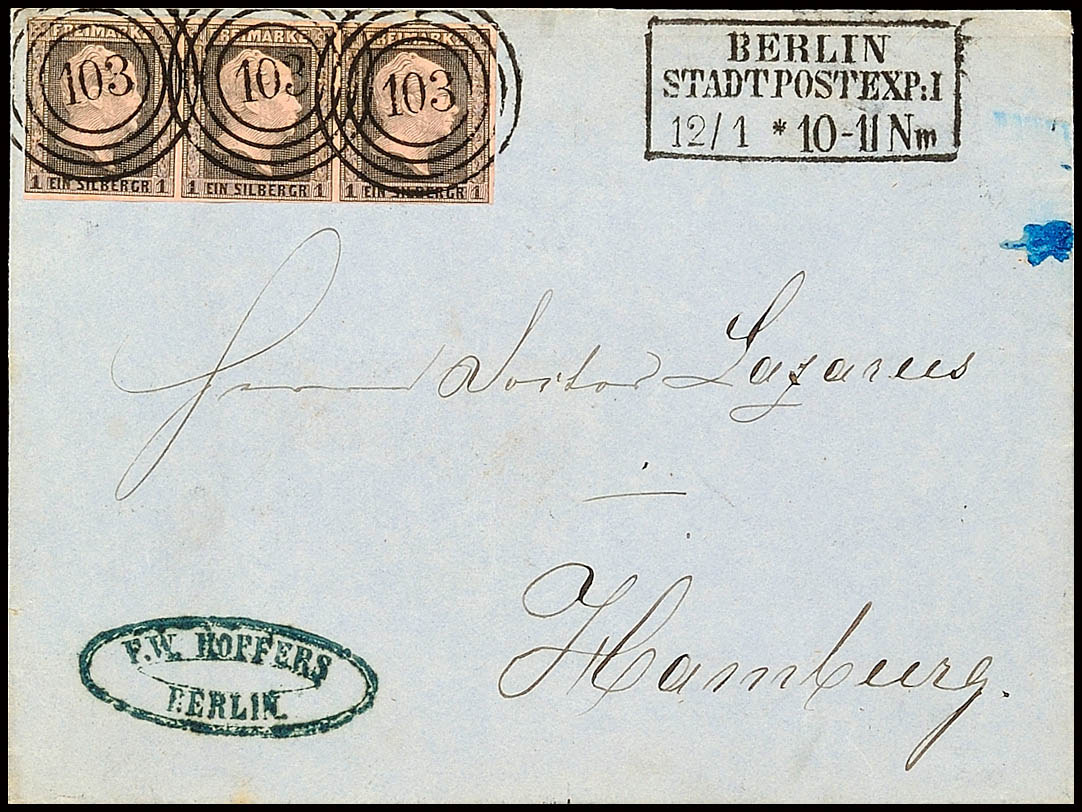 FREIMARKE FREIMARKE FREIMARKE
103 103 103
1 EIN SILBERGR 1 1 EIN SILBERGR 1 1 EIN SILBERGR 1
BERLIN
STADTPOSTEXP:I
12/1 * 10-11 Nm
Herrn Doctor Lazarus
Hamburg.
F.W. HOFFERS
BERLIN.